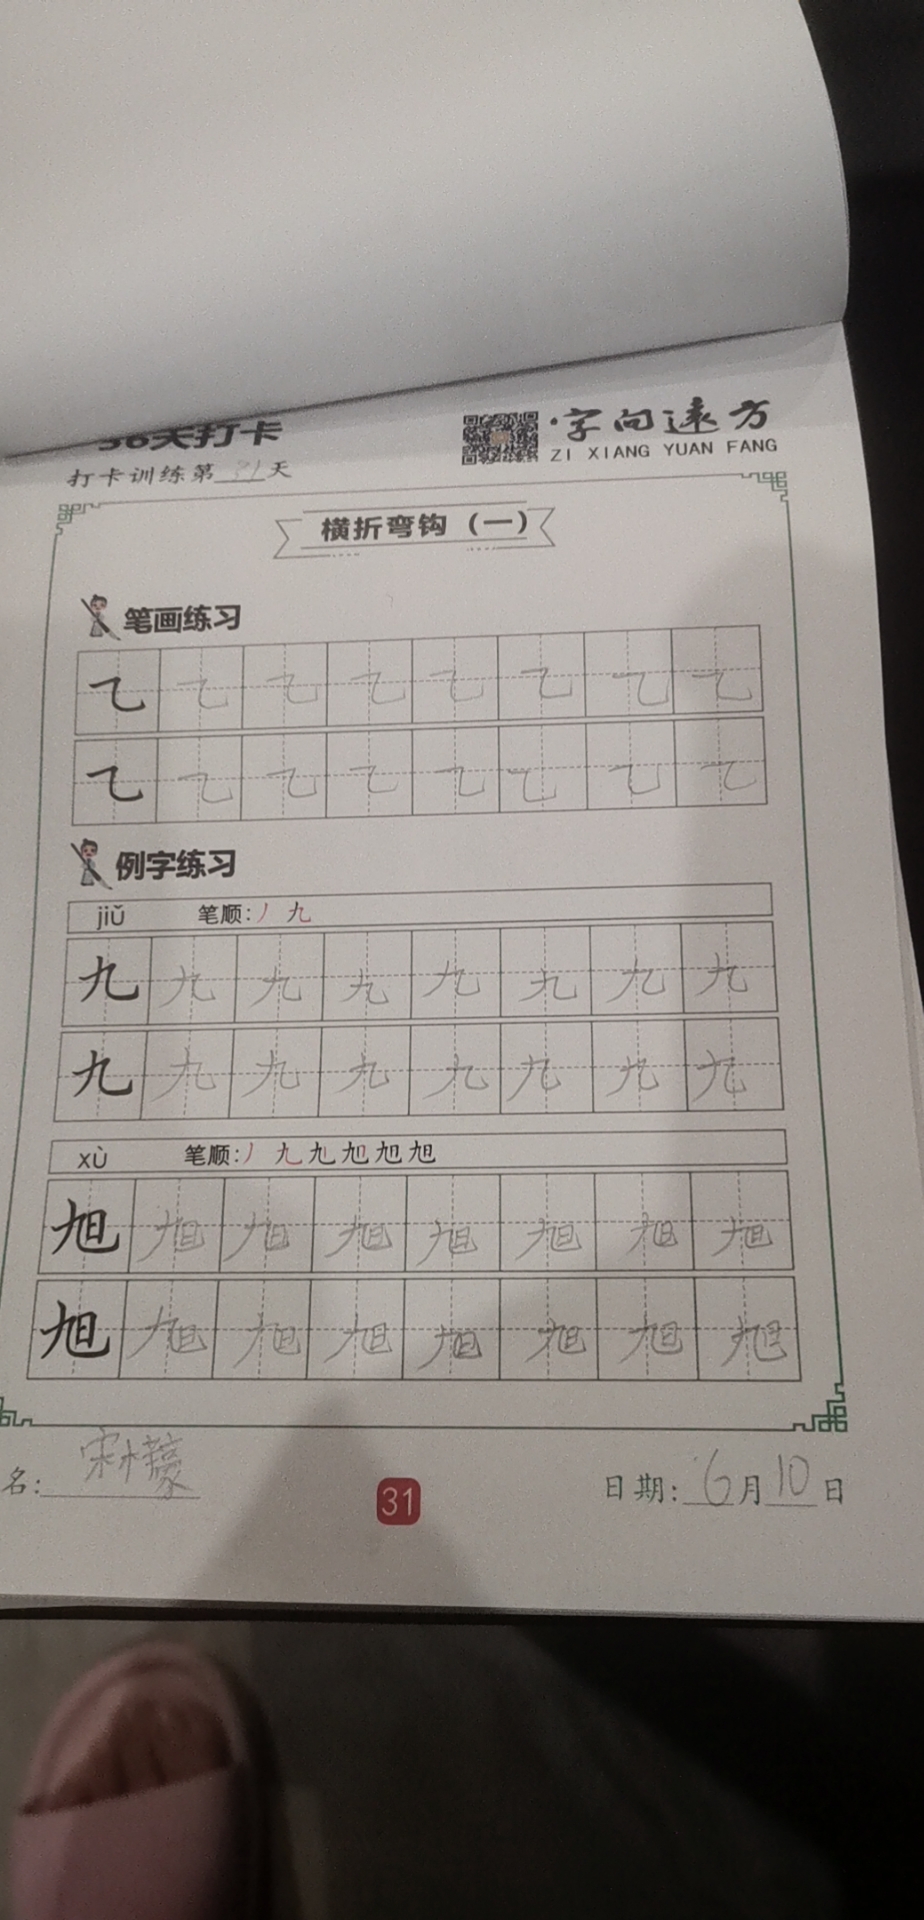 36天打卡
字向远方
ZI XIANG YUAN FANG
打卡训练第31天
横折弯钩（一）
笔画练习
㇈ ㇈ ㇈ ㇈ ㇈ ㇈ ㇈ ㇈
㇈ ㇈ ㇈ ㇈ ㇈ ㇈ ㇈ ㇈
例字练习
jiǔ 笔顺：丿 九
九 九 九 九 九 九 九 九
九 九 九 九 九 九 九 九
xù 笔顺：丿 九 九 旭 旭 旭
旭 旭 旭 旭 旭 旭 旭 旭
旭 旭 旭 旭 旭 旭 旭 旭
名：宋檬
31
日期：6月10日